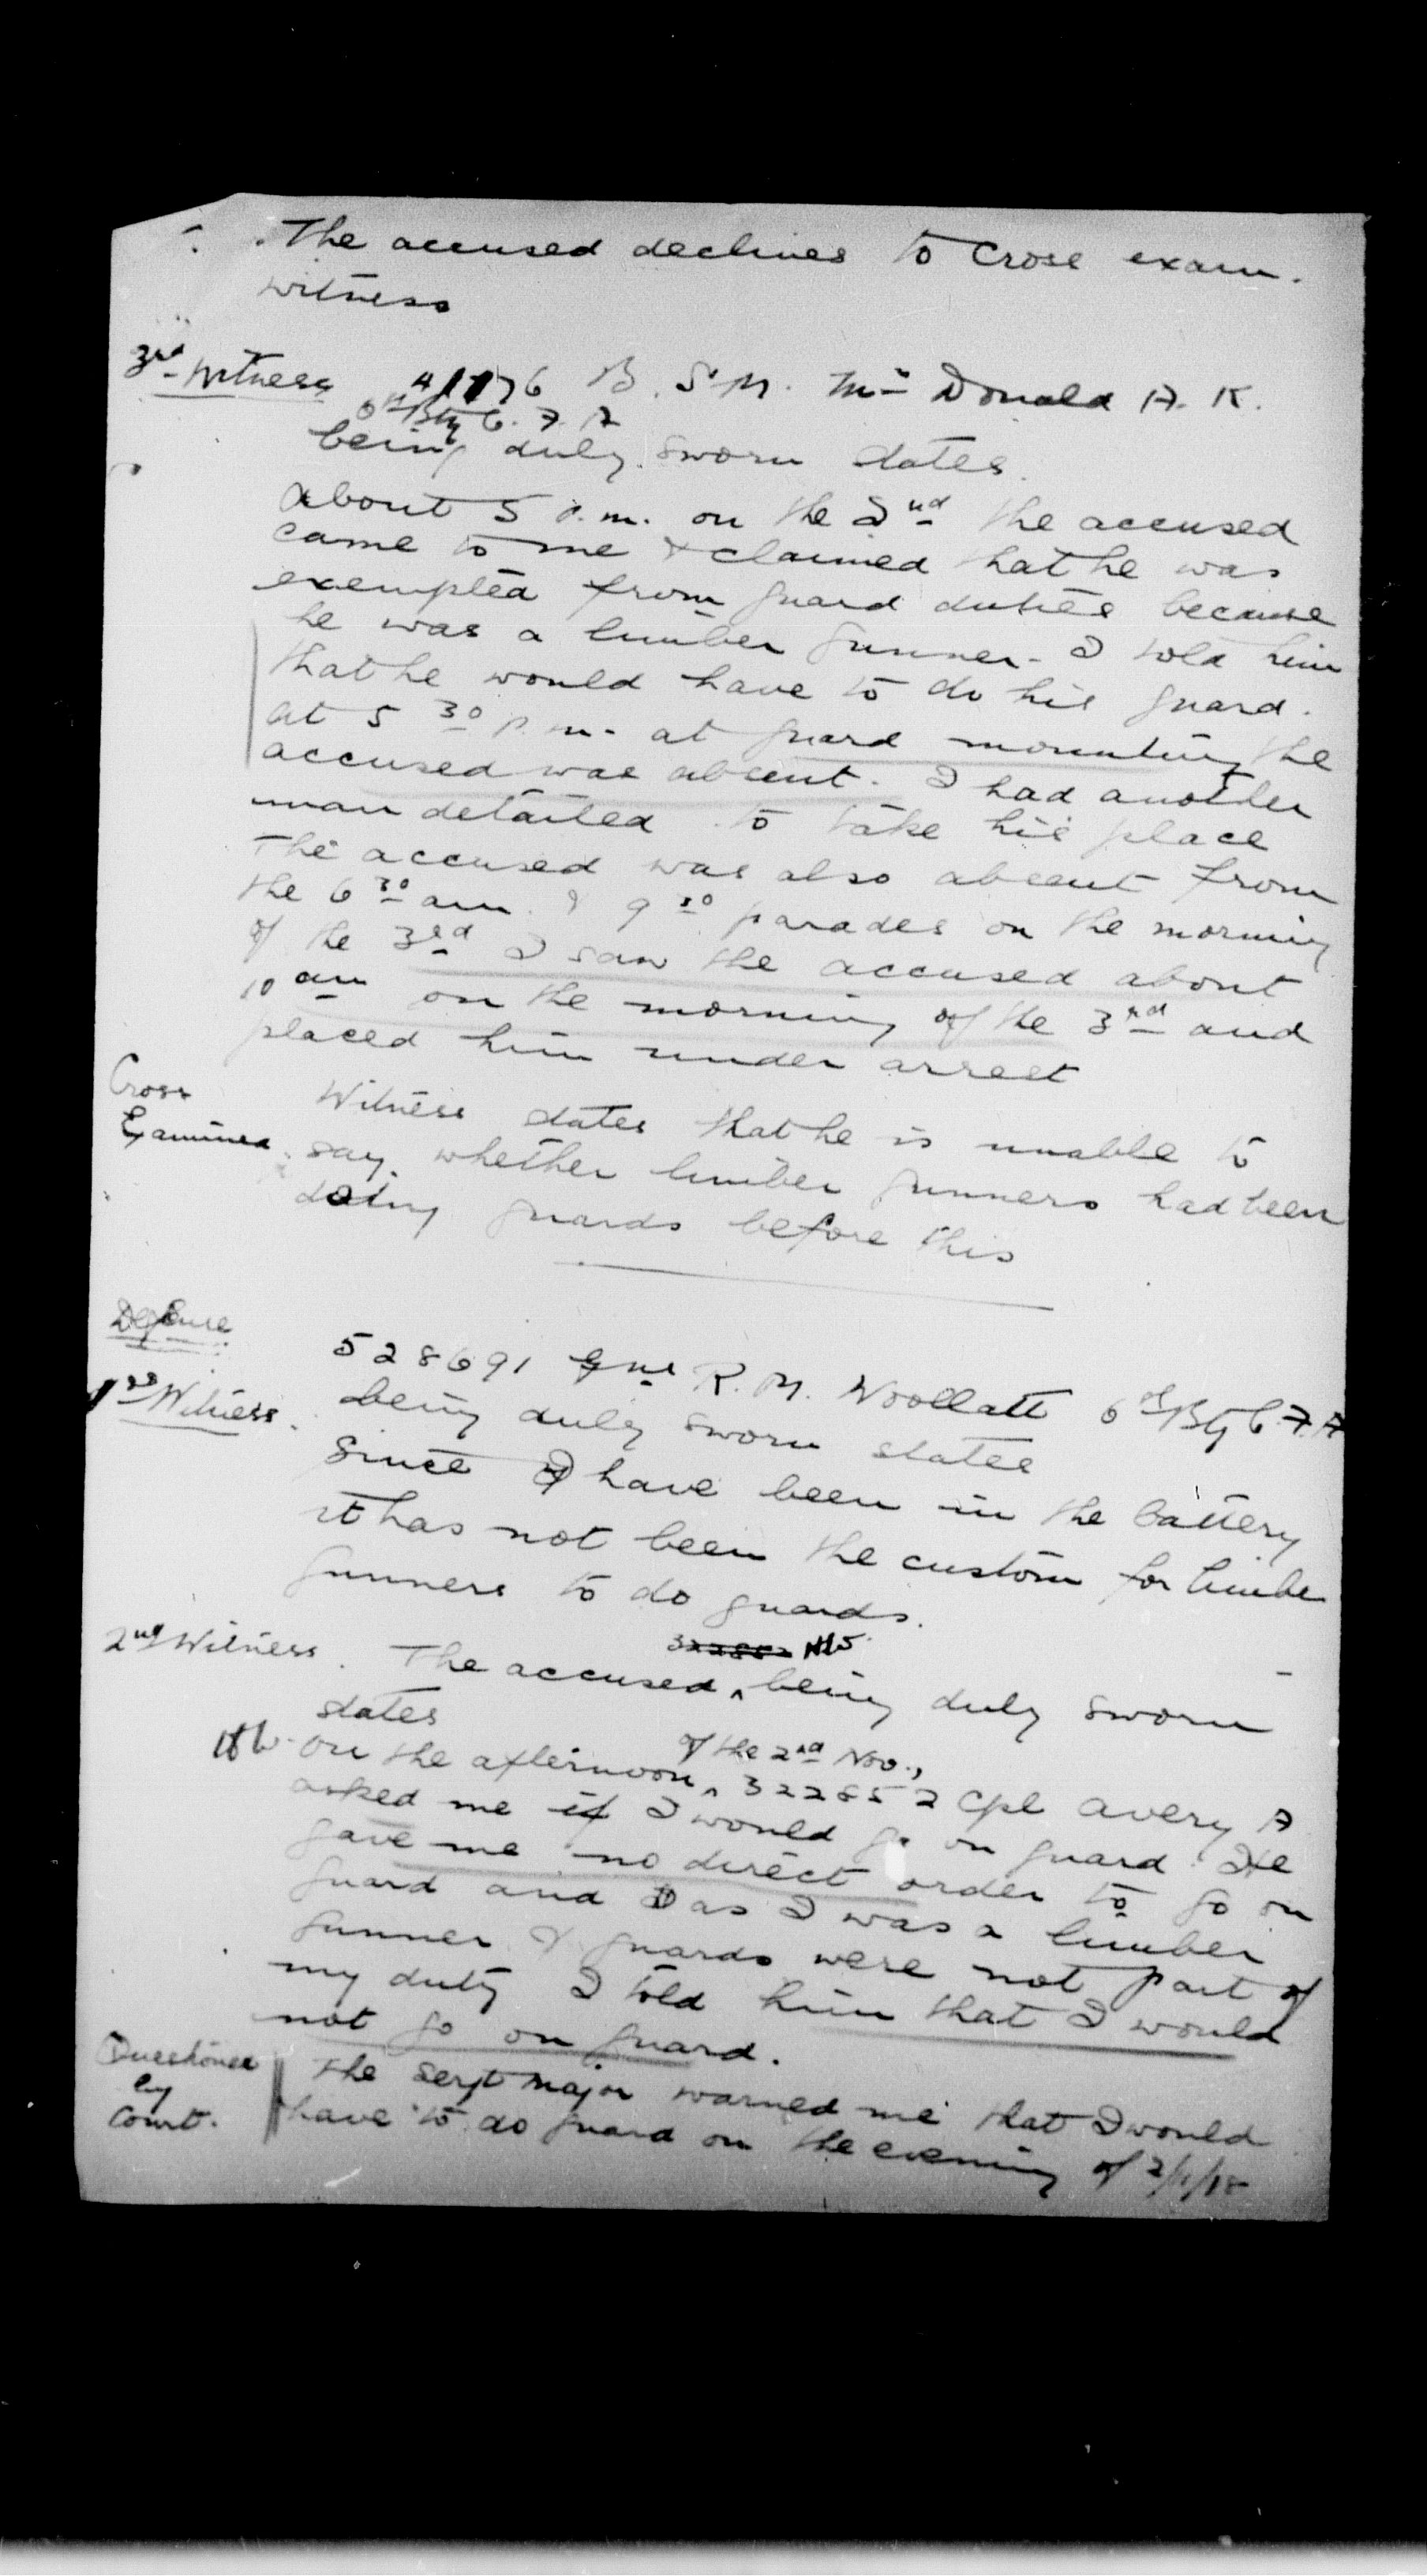 The accused declines to Cross exam.
witness
3rd Witness 41176 B.S.M. McDonald A.K.
6th Bty C.F.A
being duly sworn states.
About 5 p.m. on the 2nd the accused
came to me & claimed that he was
exempted from guard duties because
he was a limber gunner. I told him
that he would have to do his guard.
at 5 30 p.m. at guard mounting the
accused was absent. I had another
man detailed to take his place
The accused was also absent from
the 6 30 am. & 9 30 parades on the morning
of the 3rd I saw the accused about
10 am on the morning of the 3rd and
placed him under arrest
Cross
Examined. Witness states that he is unable to
say whether limber gunners had been
doing guards before this
Defence
1st Witness. 528691 Gnr R.M. Woollatt 6th Bty C.F.A
being duly sworn states
Since I have been in the battery
it has not been the custom for limber
gunners to do guards.
322852
2nd Witness. The accused ^ being duly sworn
states
of the 2nd Nov.,
On the afternoon ^ 322852 Cpl Avery A
asked me if I would go on guard. He
gave me no direct order to go on
guard and as I was a limber
gunner & guards were not part of
my duty I told him that I would
not go on guard.
Questioned
by
Court. The Sergt Major warned me that I would
have to do guard on the evening of 2/11/18